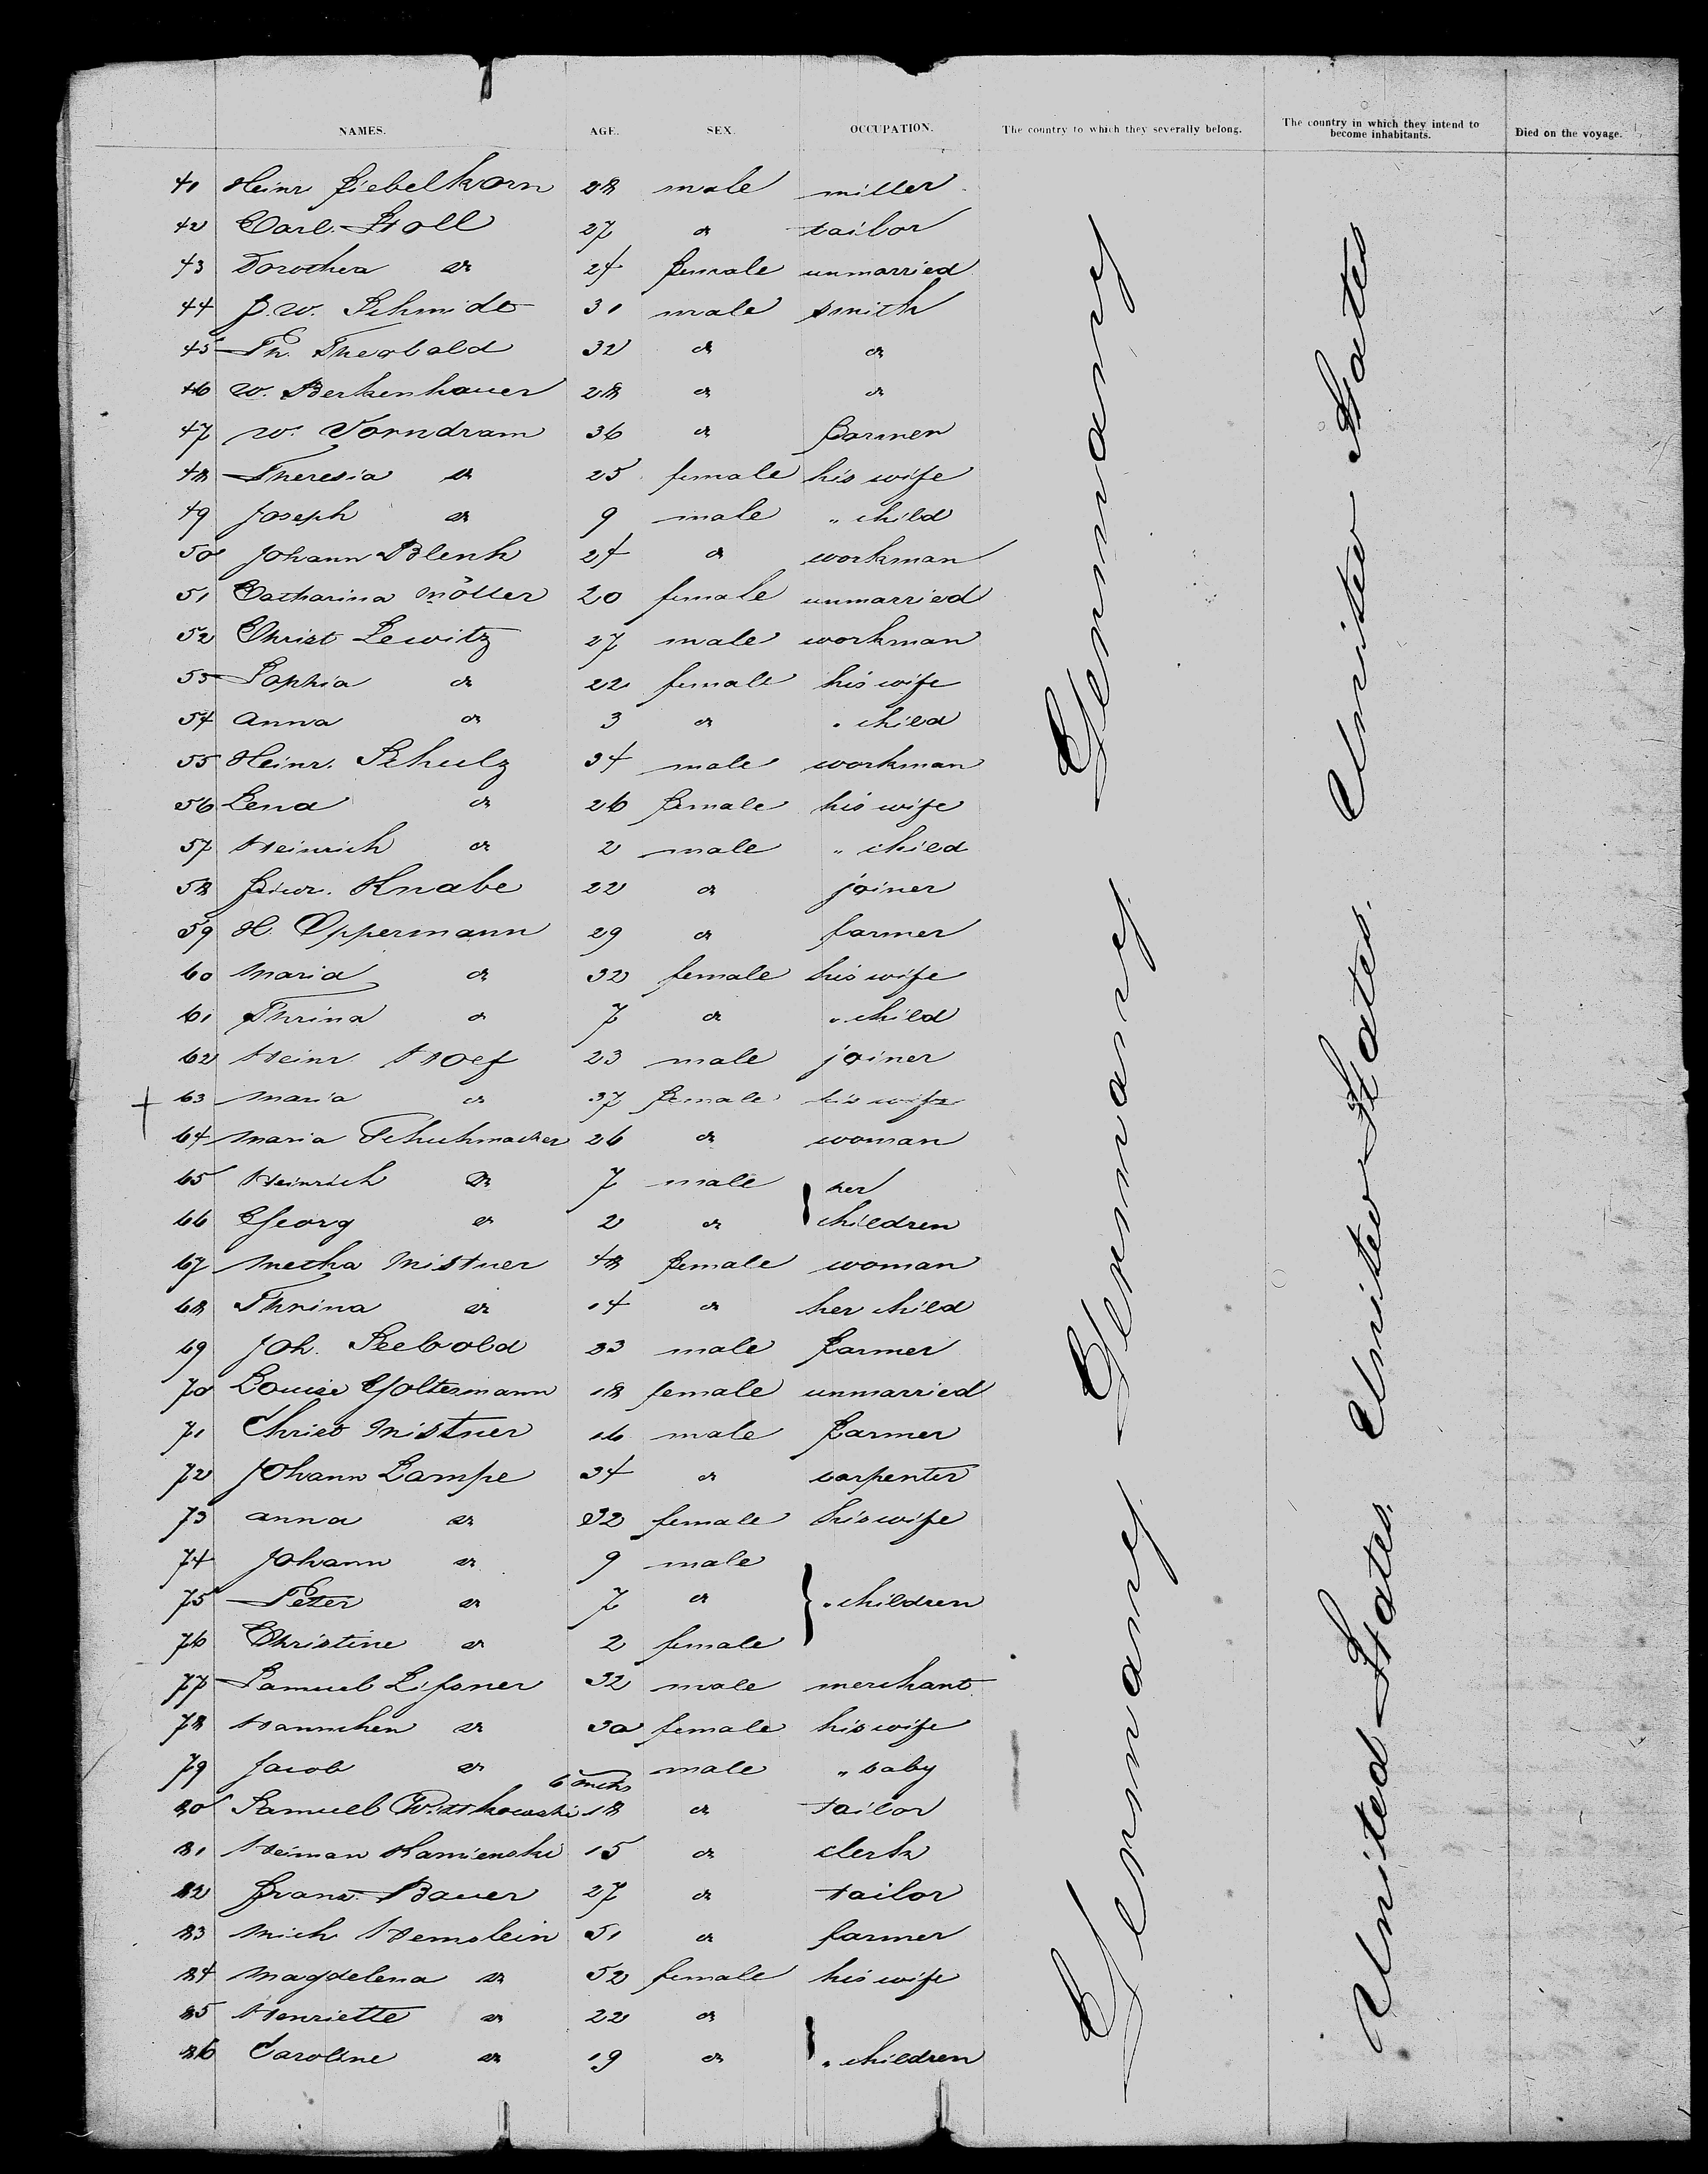 NAMES. AGE. SEX. OCCUPATION. The country to which they severally belong. The country in which they intend to become inhabitants. Died on the voyage.
41 Heinr Fiebelkorn 28 male miller
42 Carl Stoll 27 do tailor
43 Dorothea do 24 female unmarried
44 F. W. Schmidt 31 male smith
45 Ph. Theobald 32 do do
46 W. Berkenhauer 28 do do
47 W. Vorndram 36 do farmer
48 Theresia do 25 female his wife
49 Joseph do 9 male " child
50 Johann Blenk 24 do workman
51 Catharina Möller 20 female unmarried
52 Christ Lewitz 27 male workman
53 Sophia do 22 female his wife
54 Anna do 3 do " child
55 Heinr. Schulz 34 male workman
56 Lena do 26 female his wife
57 Heinrich do 2 male " child
58 Knabe 22 do joiner
59 H. Oppermann 29 do farmer
60 Maria do 32 female his wife
61 Thrina do 7 do " child
62 Heinr Hoef 23 male joiner
63 Maria do 37 female his wife
64 Maria Schuhmacher 26 do woman
65 Heinrich do 7 male her
66 Georg do 2 do children
67 Metha Mistner 48 female woman
68 Thrina do 14 do her child
69 Joh. Seebold 23 male farmer
70 Louise Goltermann 18 female unmarried
71 Christ Mistner 16 male farmer
72 Johann Lampe 34 do carpenter
73 Anna do 32 female his wife
74 Johann do 9 male
75 Peter do 7 do " children
76 Christine do 2 female
77 Samuel 32 male merchant
78 Hannchen do 30 female his wife
79 Jacob do 6 mths male " baby
80 Samuel Witthowski 18 do tailor
81 Heiman Kamienski 15 do clerk
82 Franz Bauer 27 do tailor
83 Mich Hemslein 51 do farmer
84 Magdelena do 52 female his wife
85 Henriette do 22 do
86 Caroline do 19 do " children
Germany Germany Germany
United States United States United States